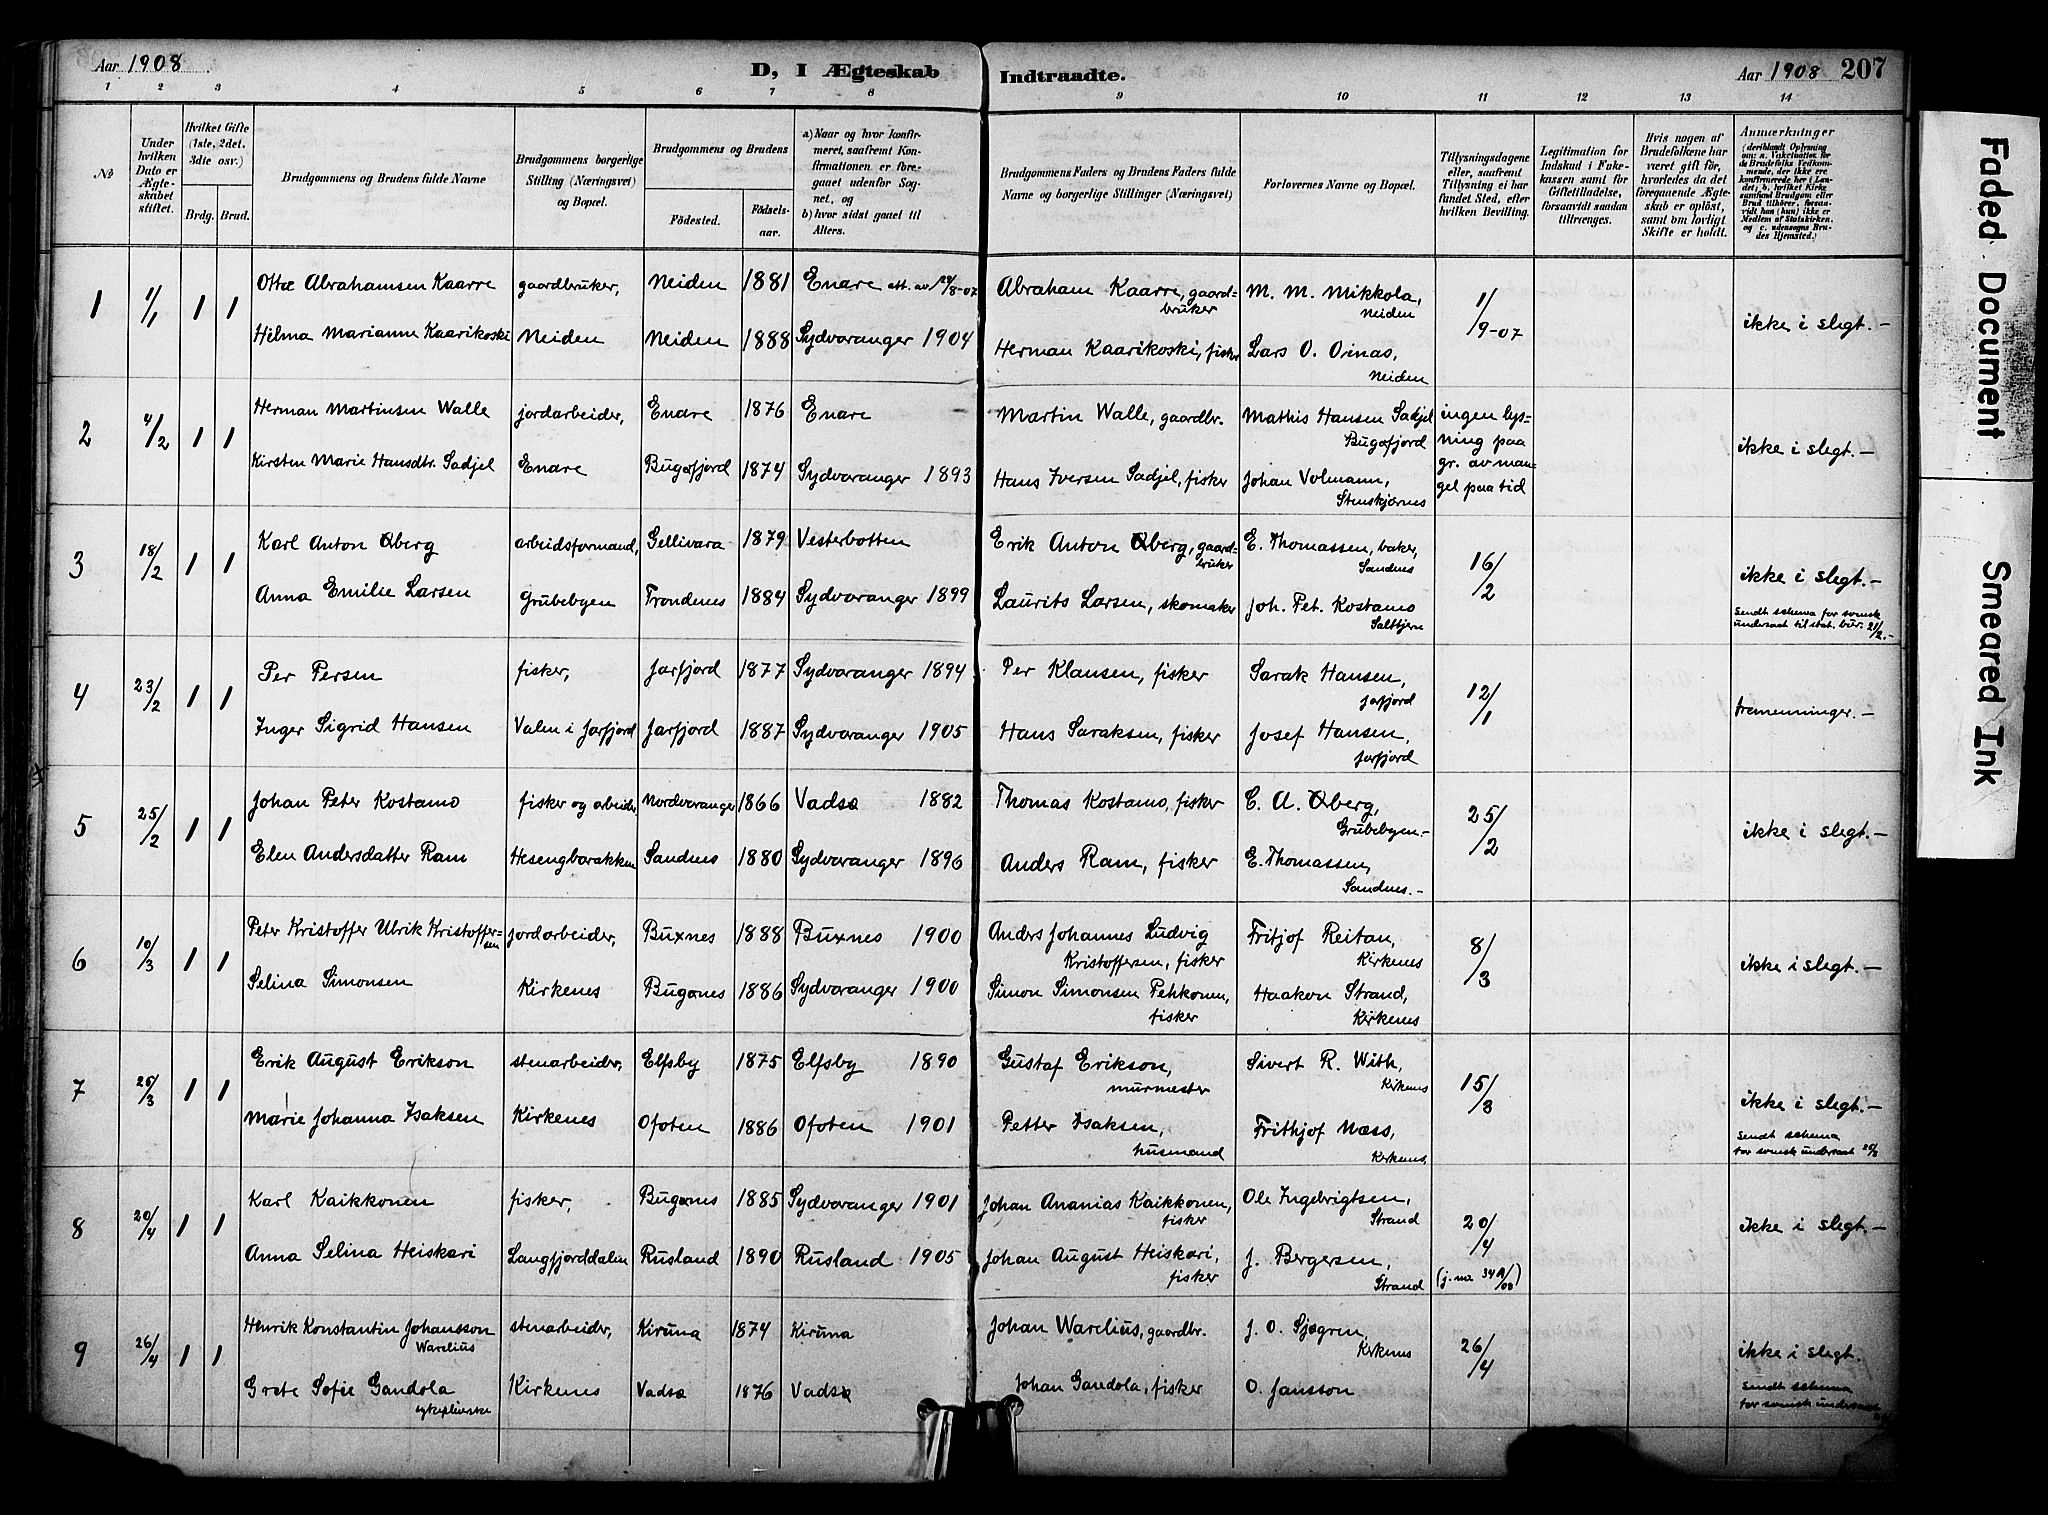 Aar 1908
D, I Ægteskab
Indtraadte.
Aar 1908 207
1 2 3 4 5 6 7 8 9 10 11 12 13 14
No
Under hvilken Dato er Ægteskabet stiftet.
Hvilket Gifte (1ste, 2det, 3die osv.)
Brdg. Brud.
Brudgommens og Brudens fulde Navne
Brudgommens borgerlige Stilling (Næringsvei) og Bopæl.
Brudgommens og Brudens
Födested.
Födselsaar.
a) Naar og hvor konfirmeret, saafremt Konfirmationen er foregaaet udenfor Sognet, og
b) hvor sidst gaaet til Alters.
Brudgommens Faders og Brudens Faders fulde Navne og borgerlige Stillinger (Næringsvei)
Forlovernes Navne og Bopæl.
Tillysningsdagene eller, saafremt Tillysning ei har fundet Sted, efter hvilken Bevilling.
Legitimation for Indskud i Enkekassen samt for Giftetilladelse, forsaavidt saadan tiltrænges.
Hvis nogen af Brudefolkene har været gift för, hvorledes da det foregaaende Ægteskab er oplöst, samt om lovligt Skifte er holdt.
Anmærkninger (deriblandt Oplysning om: a. Vakcination for de Brudefolks Vedkommende, der ikke ere konfirmerede her i Landet; b. hvilket Kirkesamfund Brudgom eller Brud tilhörer, forsaavidt han (hun) ikke er Medlem af Statskirken, og c. udensogns Brudes Hjemsted.)
1 1/1 1 1 Otto Abrahamsen Kaarre gaardbruker, Neiden 1881 Enare att. av 12/8-07 Abraham Kaarre, gaardbruker M. M. Mikkola, Neiden 1/9-07 ikke i slegt.-
Helma Marianne Kaarikoski Neiden Neiden 1888 Sydvaranger 1904 Herman Kaarikoski, fisker Lars O. Oinas, Neiden
2 4/2 1 1 Herman Martinsen Walle jordarbeider, Enare 1876 Enare Martin Walle, gaardbr. Mathis Hansen Sadjel Bugøfjord ingen lysning paa gr. av mangel paa tid ikke i slegt.-
Kirsten Marie Hansdtr. Sadjel Enare Bugøfjord 1874 Sydvaranger 1893 Hans Iversen Sadjel, fisker Johan Volmann, Stenskjærnes
3 18/2 1 1 Karl Anton Øberg arbeidsformand, Gellivara 1879 Vesterbotten Erik Anton Øberg, gaardbruker E. Thomassen, baker, Sandnes 16/2 ikke i slegt.-
Anna Emilie Larsen Grubebyen Trondenes 1884 Sydvaranger 1899 Laurits Larsen, skomaker Joh. Pet. Kostamo Saltbjern sendt schema for svensk undersaat til stat. bur. 21/2.-
4 23/2 1 1 Per Persen fisker, Jarfjord 1877 Sydvaranger 1894 Per Klausen, fisker Sarak Hansen, Jarfjord 12/1 tremenninger.-
Inger Sigrid Hansen Valen i Jarfjord Jarfjord 1887 Sydvaranger 1905 Hans Saraksen, fisker Josef Hansen, Jarfjord
5 25/2 1 1 Johan Peter Kostamo fisker og arbeider, Nordvaranger 1866 Vadsø 1882 Thomas Kostamo, fisker C. A. Øberg, Grubebyen.- 25/2 ikke i slegt.-
Elen Andersdatter Ram Hesengbarakken Sandnes 1880 Sydvaranger 1896 Anders Ram, fisker E. Thomassen, Sandnes.-
6 10/3 1 1 Peter Kristoffer Ulrik Kristoffersen jordarbeider, Buxnes 1888 Buxnes 1900 Anders Johannes Ludvig Kristoffersen, fisker Fritjof Reitan, Kirkenes 8/3 ikke i slegt.-
Selina Simonsen Kirkenes Bugønes 1886 Sydvaranger 1900 Simon Simonsen Pehkonen, fisker Haakon Strand, Kirkenes
7 25/3 1 1 Erik August Erikson stenarbeider, Elfsby 1875 Elfsby 1890 Gustaf Erikson, murmester Sivert R. With, Kirkenes 15/3 ikke i slegt.-
Marie Johanna Isaksen Kirkenes Ofoten 1886 Ofoten 1901 Petter Isaksen, husmand Frithjof Næss, Kirkenes sendt schema for svensk undersaat 26/3
8 20/4 1 1 Karl Kaikkonen fisker, Bugønes 1885 Sydvaranger 1901 Johan Ananias Kaikkonen, fisker Ole Ingebrigtsen, Strand 20/4 ikke i slegt.-
Anna Selina Heiskari Langfjorddalen Rusland 1890 Rusland 1905 Johan August Heiskari, fisker J. Bergersen, Strand (j. no. 34A/08)
9 26/4 1 1 Henrik Konstantin Johansson Warelius stenarbeider, Kiruna 1874 Kiruna Johan Warelius, gaardbr. J. O. Sjøgren, Kirkenes 26/4 ikke i slegt.
Grete Sofie Gandola sykepleierske Kirkenes Vadsø 1876 Vadsø Johan Gandola, fisker O. Jansson sendt schema for svensk undersaat
Faded Document
Smeared Ink